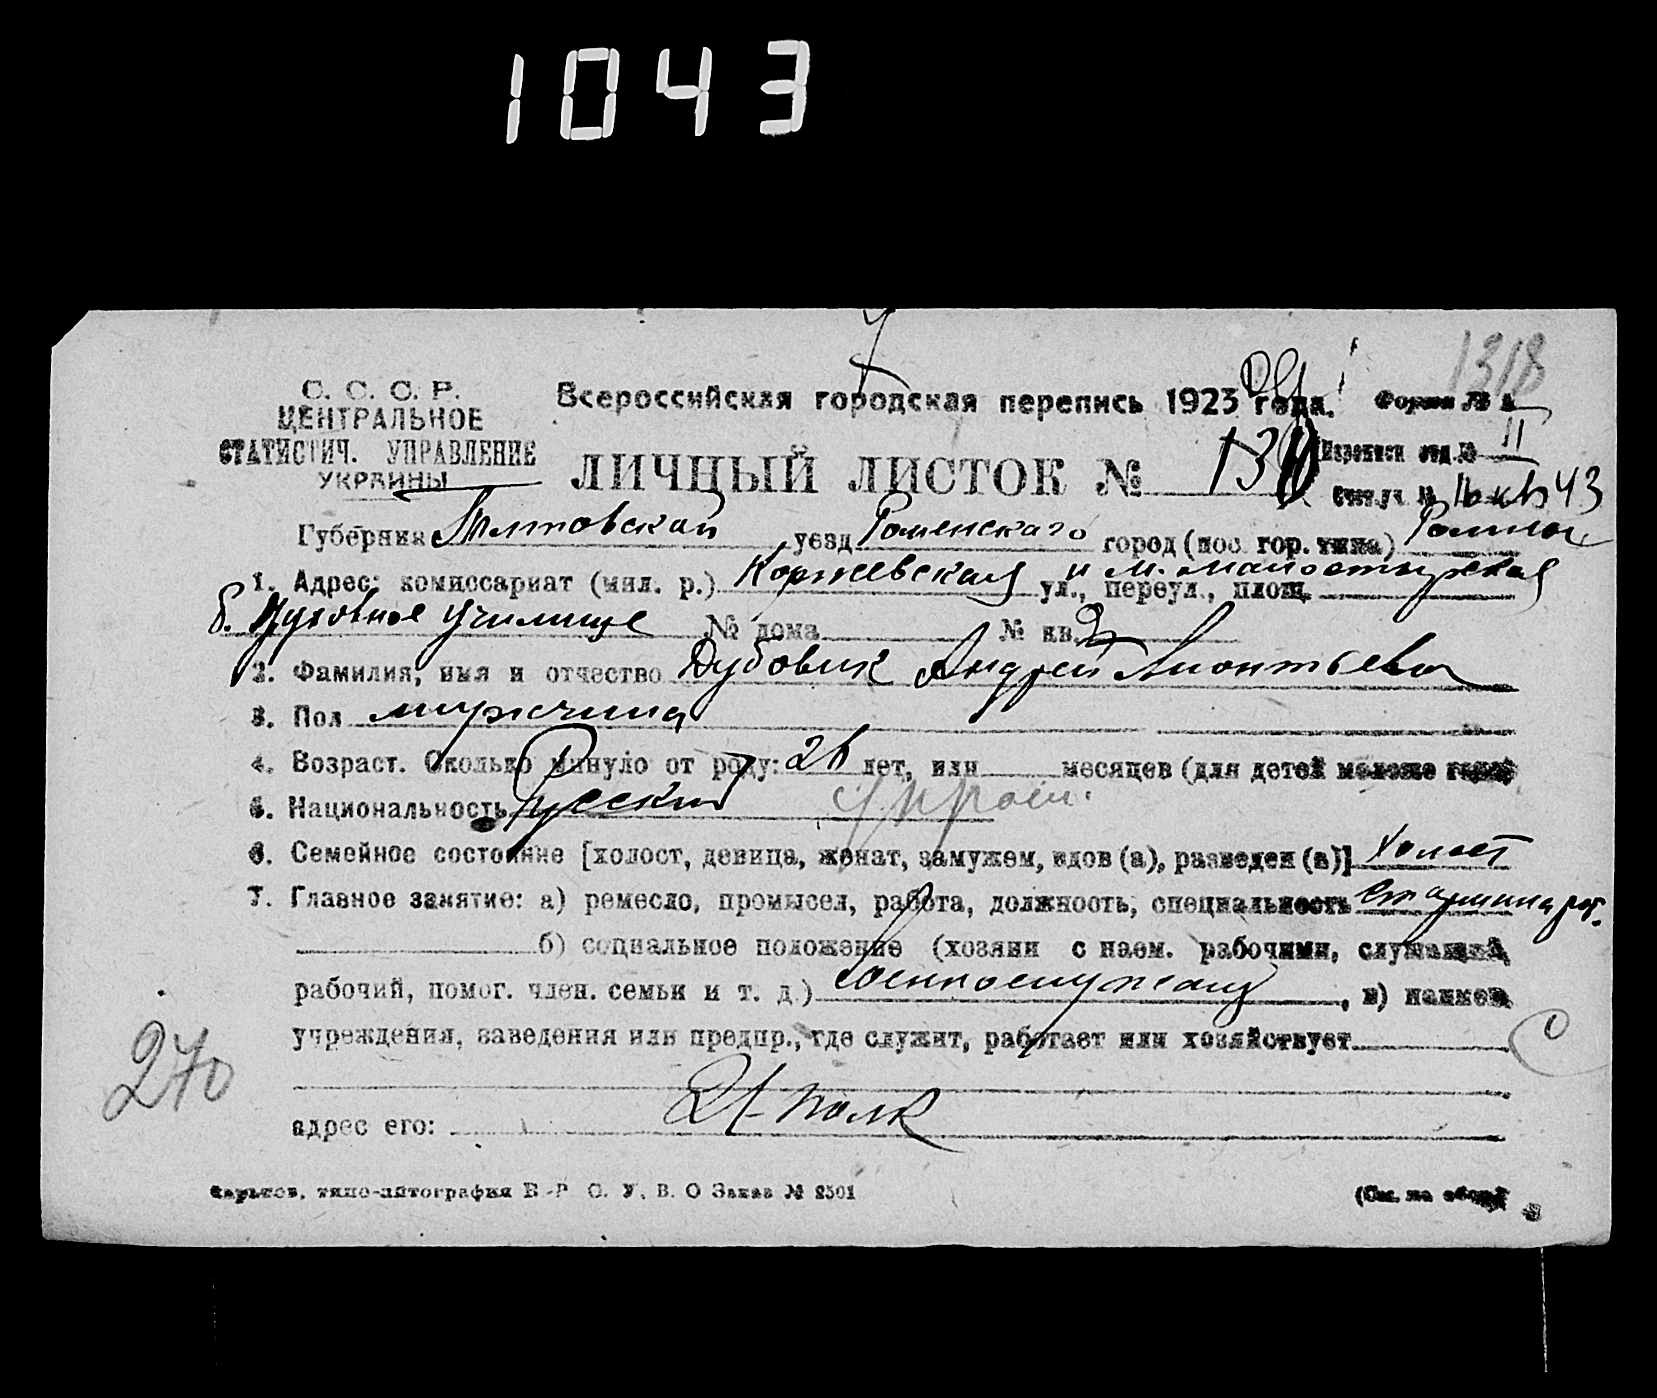 1043
1318
С. С. С. Р.
ЦЕНТРАЛЬНОЕ
СТАТИСТИЧ. УПРАВЛЕНИЕ
УКРАИНЫ
Всероссийская городская перепись 1923 года.
Форма № 
ЛИЧНЫЙ ЛИСТОК №
Переписн отд. № II
Счетн. уч. № 43
Губерния Полтовской уезд Роменскаго город (пос. гор. типа) Ромны
1. Адрес: комиссариат (мил. р.) Коржевская и м. манастырская ул., переул., площ.
б. Духовное училище № дома № кв. 2
2. Фамилия, имя и отчество Дубовик Андрей Лионтьевич
3. Пол мужчина
4. Возраст. Сколько минуло от роду: 26 лет, или месяцев (для детей моложе года)
5. Национальность Русский
6. Семейное состояние [холост, девица, женат, замужем, вдов (а), разведен (а)] холост
7. Главное занятие: а) ремесло, промысел, работа, должность, специальность Старшина рот.
б) социальное положение (хозяин с наем. рабочими, служащий,
рабочий, помог. член. семьи и т. д.) военнослужащ , в) наимен.
учреждения, заведения или предпр., где служит, работает или хозяйствует
С
270
адрес его: 21 полк
Харьков, типо-литография В.-Р. О. У. В. О Заказ № 2501
(См. на обор.)